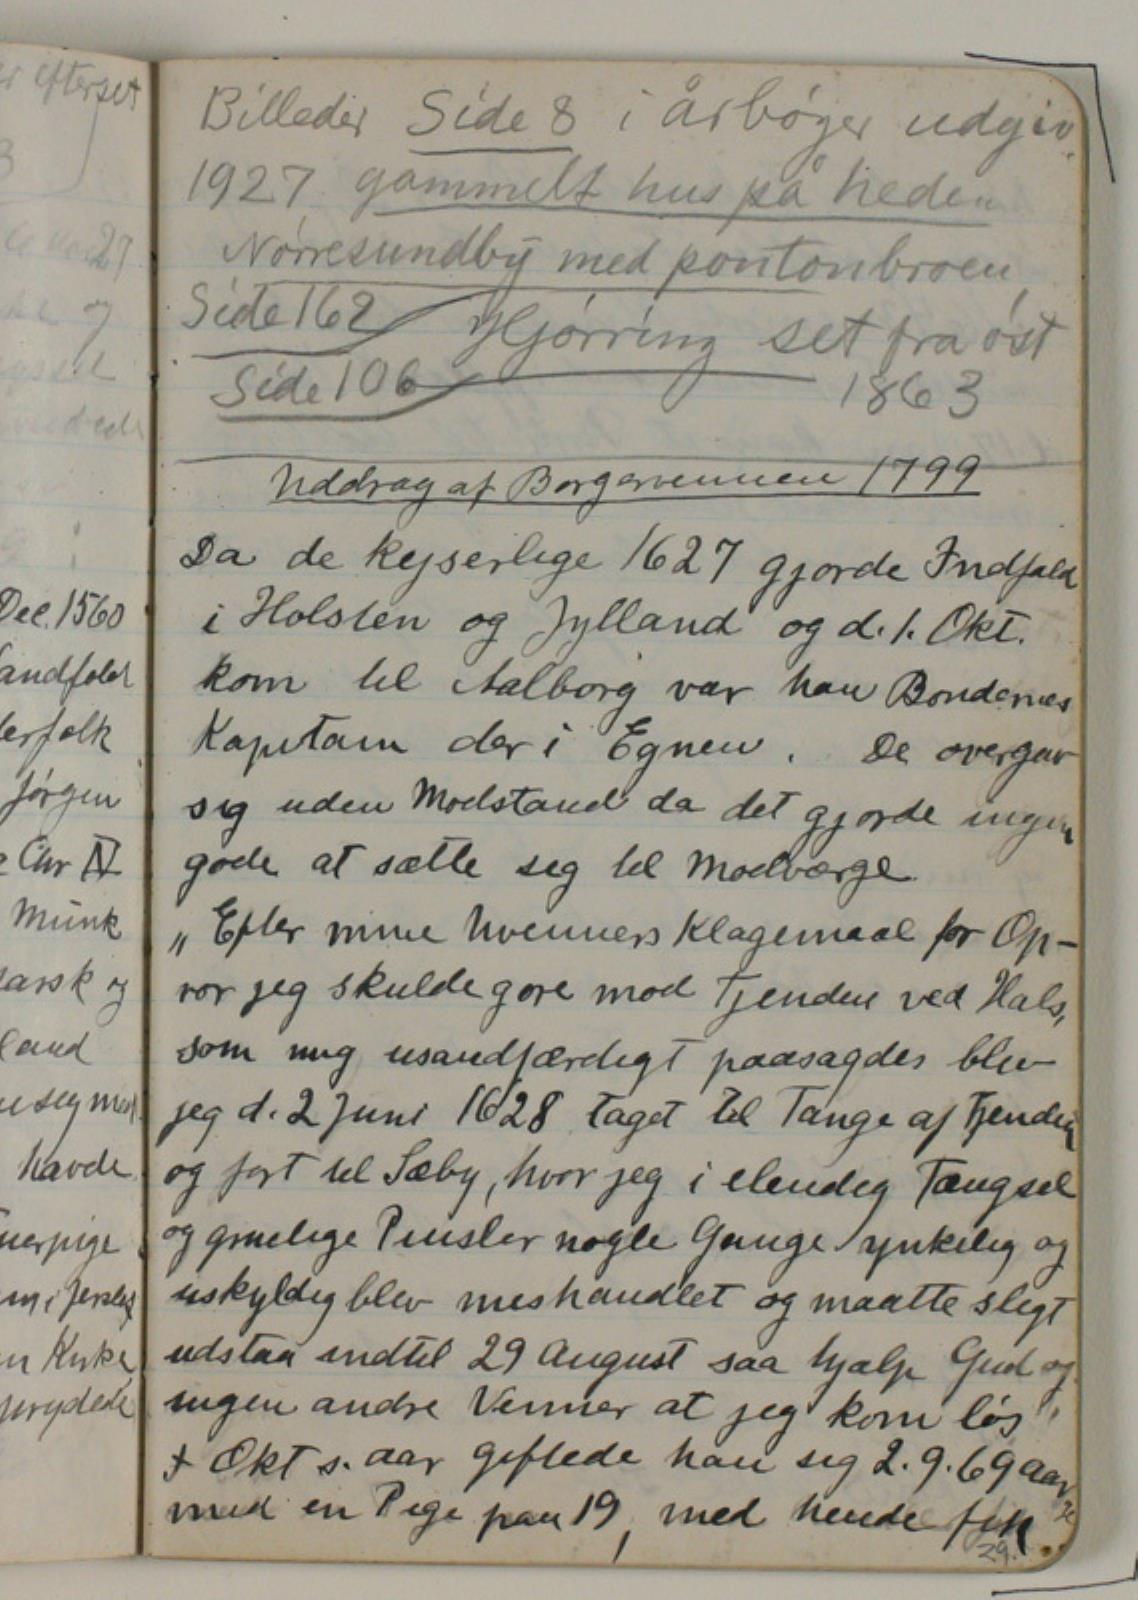 er efterset
3
27
og
Dec. 1560
andfolk
erfolk
Jørgen
Chr IV
Munk
arsk og
land
sig med
havde
uerpige
m i Jerslev
n Kirke
prydede
Billeder Side 8 i årbøger udgiv.
1927 gammelt hus på heden
Nørresundby med pontonbroen
Side 162 Hjørring set fra øst
Side 106 1863
Uddrag af Borgervennen 1799
Da de kejserlige 1627 gjorde Indfald
i Holsten og Jylland og d. 1. Okt.
kom til Aalborg var han Bondernes
Kaptain der i Egnen. De overgav
sig uden Modstand da det gjorde ingen
gode at sætte seg til Modværge
„Efter mine Uvenners Klagemaal for Op-
rør jeg skulde gøre mod Fjenden ved Hals,
som mig usandfærdigt paasagdes blev
jeg d. 2 Juni 1628 taget til Fange af Fjenden
og ført til Sæby, hvor jeg i elendig Fængsel
og gruelige Pinsler nogle Gange ynkelig og
uskyldig blev meshandlet og maatte sligt
udstaa indtil 29 August saa hjalp Gud og
ingen andre Venner at jeg kom løs"
I Okt s. aar giftede han sig 2. g. 69 Aar
med en Pige paa 19, med hende fik
29.